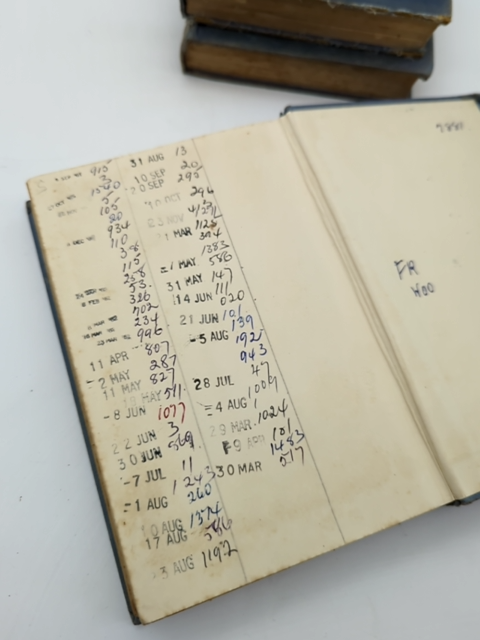 915
3
1540
5
105
20
934
110
38
115
258
53
326
702
234
996
11 APR 807
-2 MAY 287
11 MAY 827
MAY 511
-8 JUN 1077
22 JUN 3
30 JUN 569
-7 JUL 11
-1 AUG 1243
260
10 AUG 1374
17 AUG 586
AUG 1192
31 AUG 13
10 SEP 20
20 SEP 295
10 OCT 294
23 NOV
MAR 1125
394
1383
MAY 586
31 MAY 147
14 JUN 111
020
21 JUN 101
-5 AUG 139
192
943
28 JUL 47
1009
-4 AUG 1
29 MAR 1024
101
1483
30 MAR 517
FR
WOO